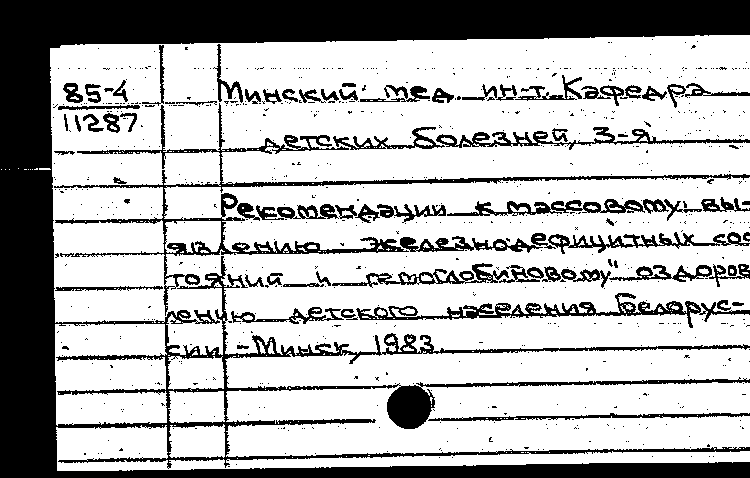 85-4
11287
Минский мед. ин-т. Кафедра
детских болезней, 3-я.
Рекомендации к массовому вы-
явлению железнодефицитных сос
тояний и "гемоглобиновому" оздоров
лению детского населения Белорус-
сии -Минск, 1983.